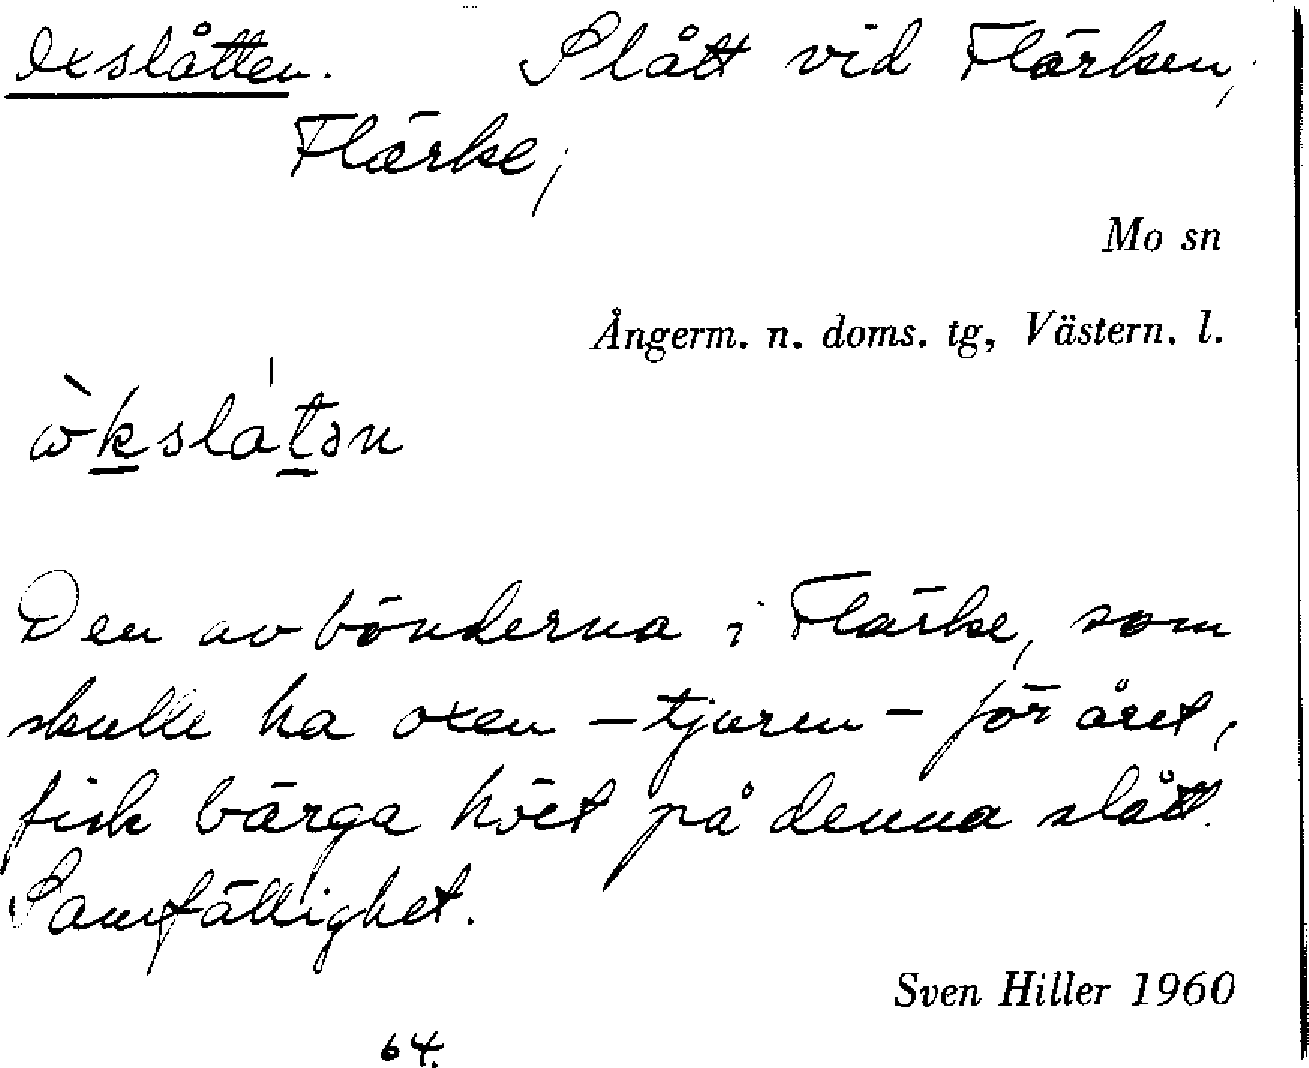 Oxslåtten. Slått vid Flärken,
Flärke,
Mo sn
Ångerm. n. doms. tg, Västern. l.
ὼkslatən
Den av bönderna i Flärke, som
skulle ha oxen – tjuren – för året,
fick bärga höet på denna slått.
Samfällighet.
Sven Hiller 1960
64.